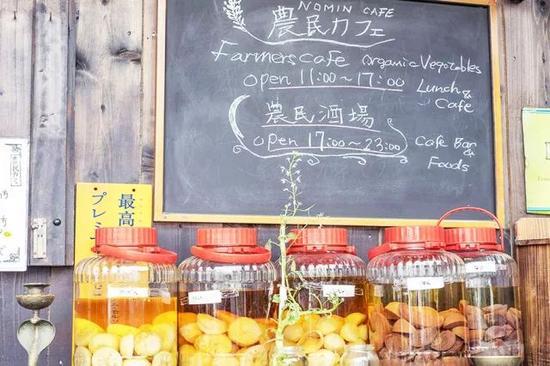 NOMIN CAFE
農民カフェ
Farmers cafe organic Vegetables
open 11:00〜17:00 Lunch & Cafe
農民酒場
open 17:00〜23:00 Cafe Bar & Foods
最高
プレミ